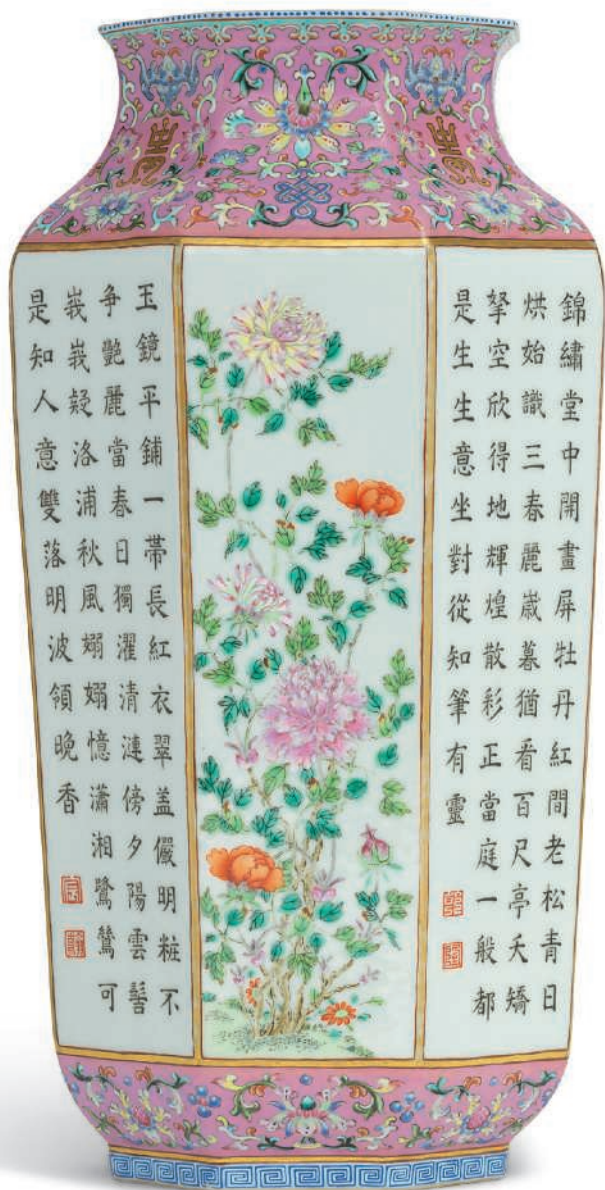 錦繡堂中開畫屏牡丹紅間老松青日
烘始識三春麗歲暮猶看百尺亭夭矯
拏空欣得地輝煌散彩正當庭一般都
是生生意坐對從知筆有靈
玉鏡平鋪一帶長紅衣翠盖儼明粧不
争艷麗當春日獨濯清漣傍夕陽雲髻
峩峩疑洛浦秋風嫋嫋憶瀟湘鷺鷥可
是知人意雙落明波領晚香